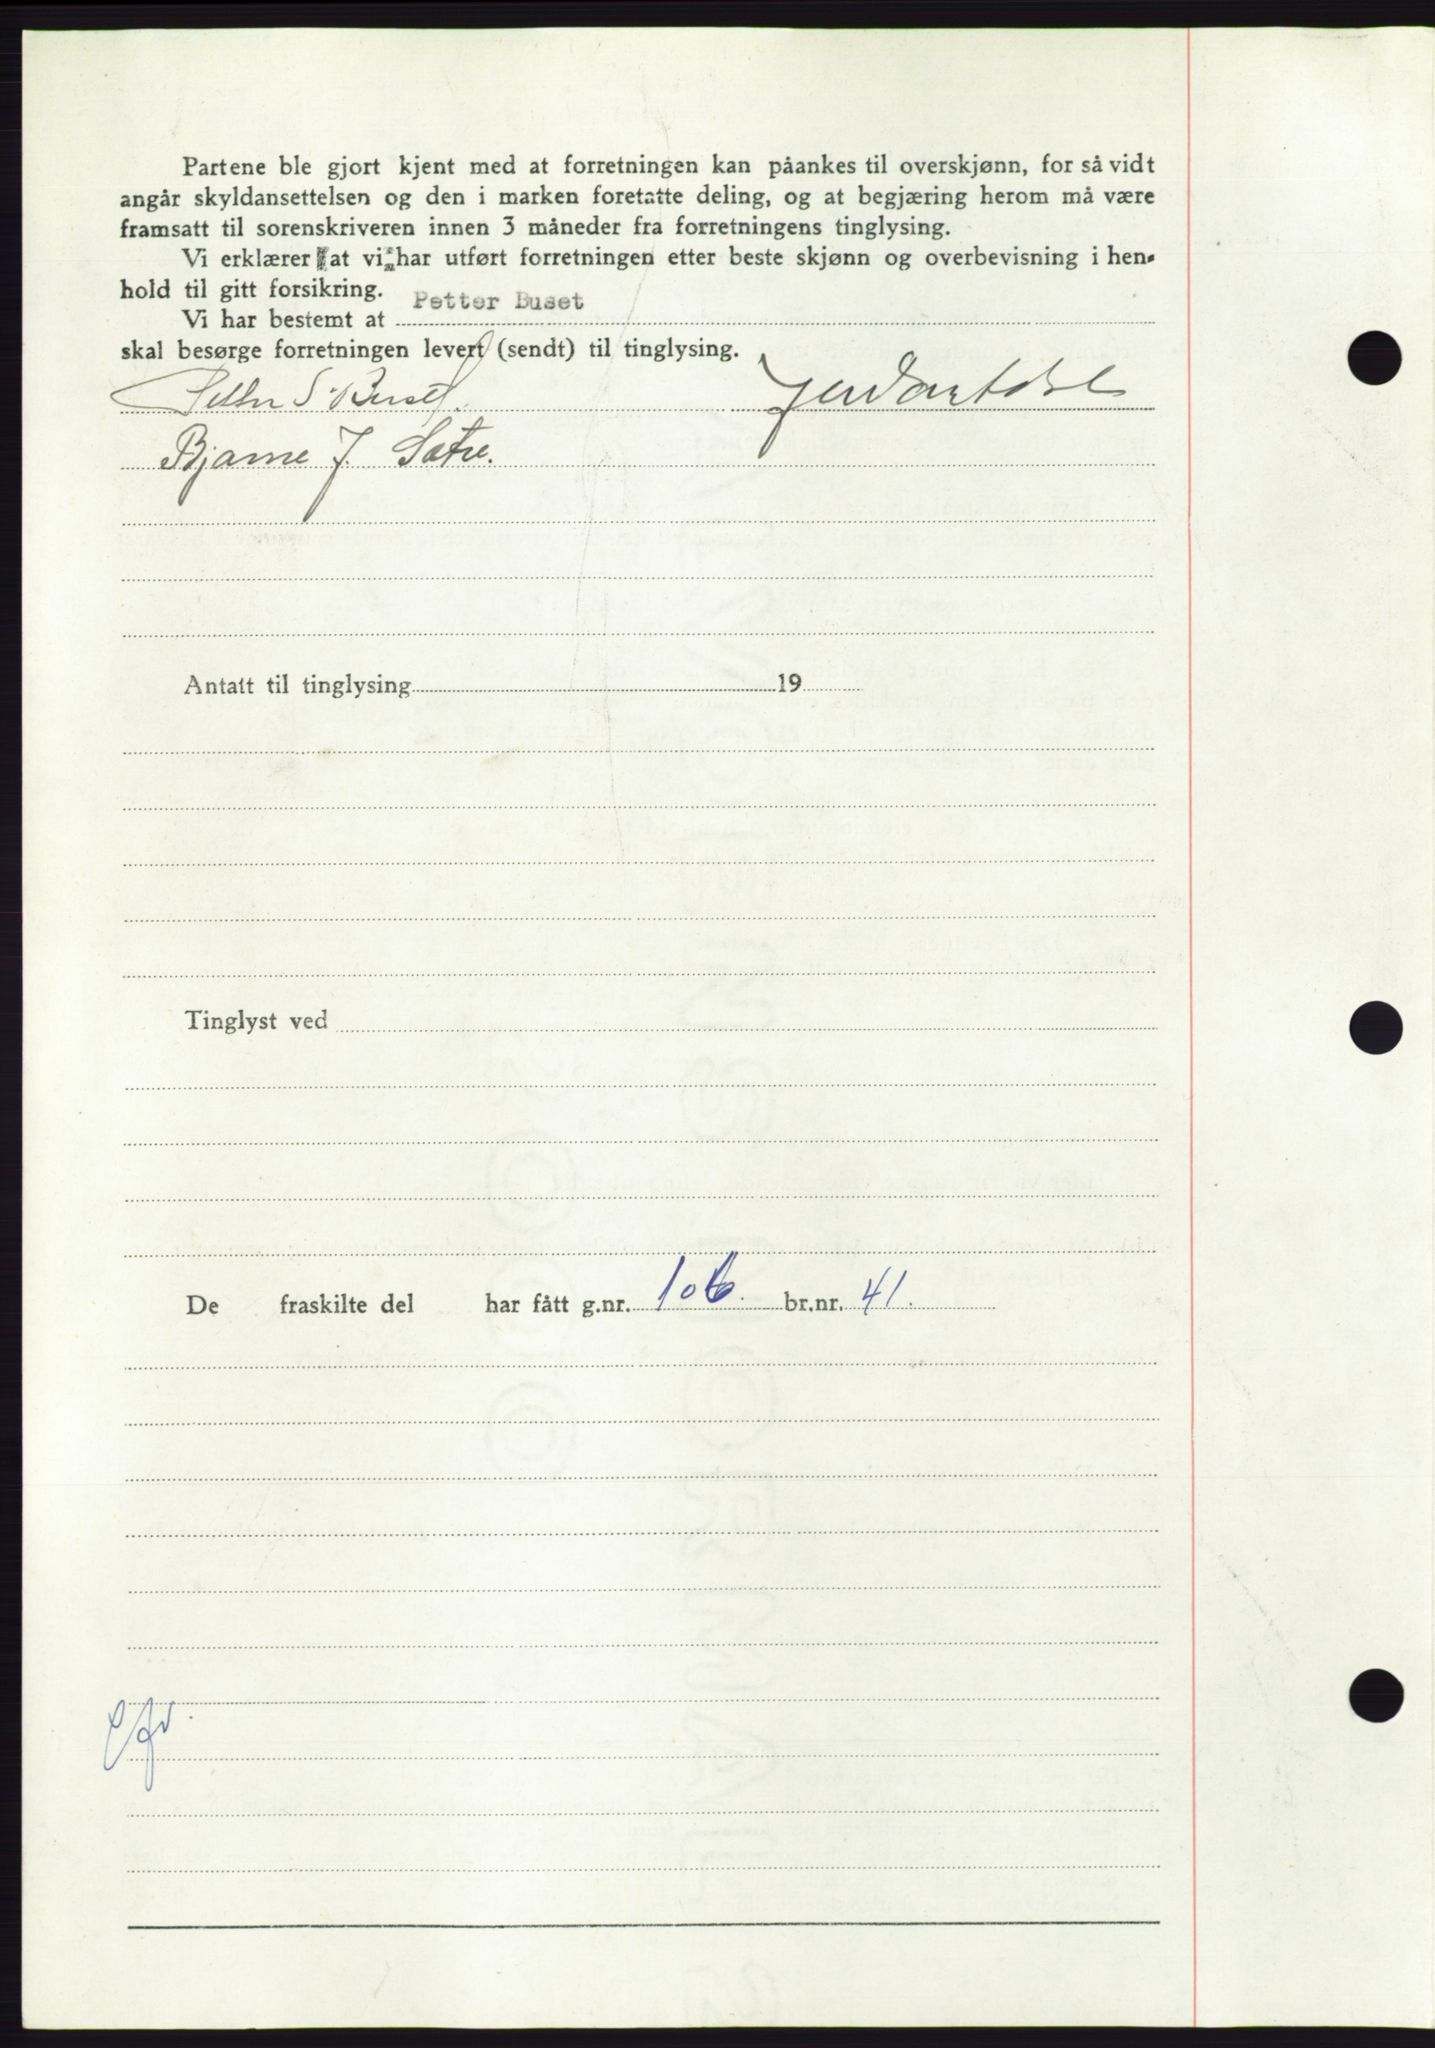 Partene ble gjort kjent med at forretningen kan påankes til overskjønn, for så vidt
angår skyldansettelsen og den i marken foretatte deling, og at begjæring herom må være
framsatt til sorenskriveren innen 3 måneder fra forretningens tinglysing.
Vi erklærer at vi har utført forretningen etter beste skjønn og overbevisning i hen-
hold til gitt forsikring.
Vi har bestemt at Petter Buset
skal besørge forretningen levert (sendt) til tinglysing.
Petter S. Buset.
Bjarne J. Sætre.
Antatt til tinglysing 19
Tinglyst ved
De fraskilte del har fått g.nr. 106. br.nr. 41.